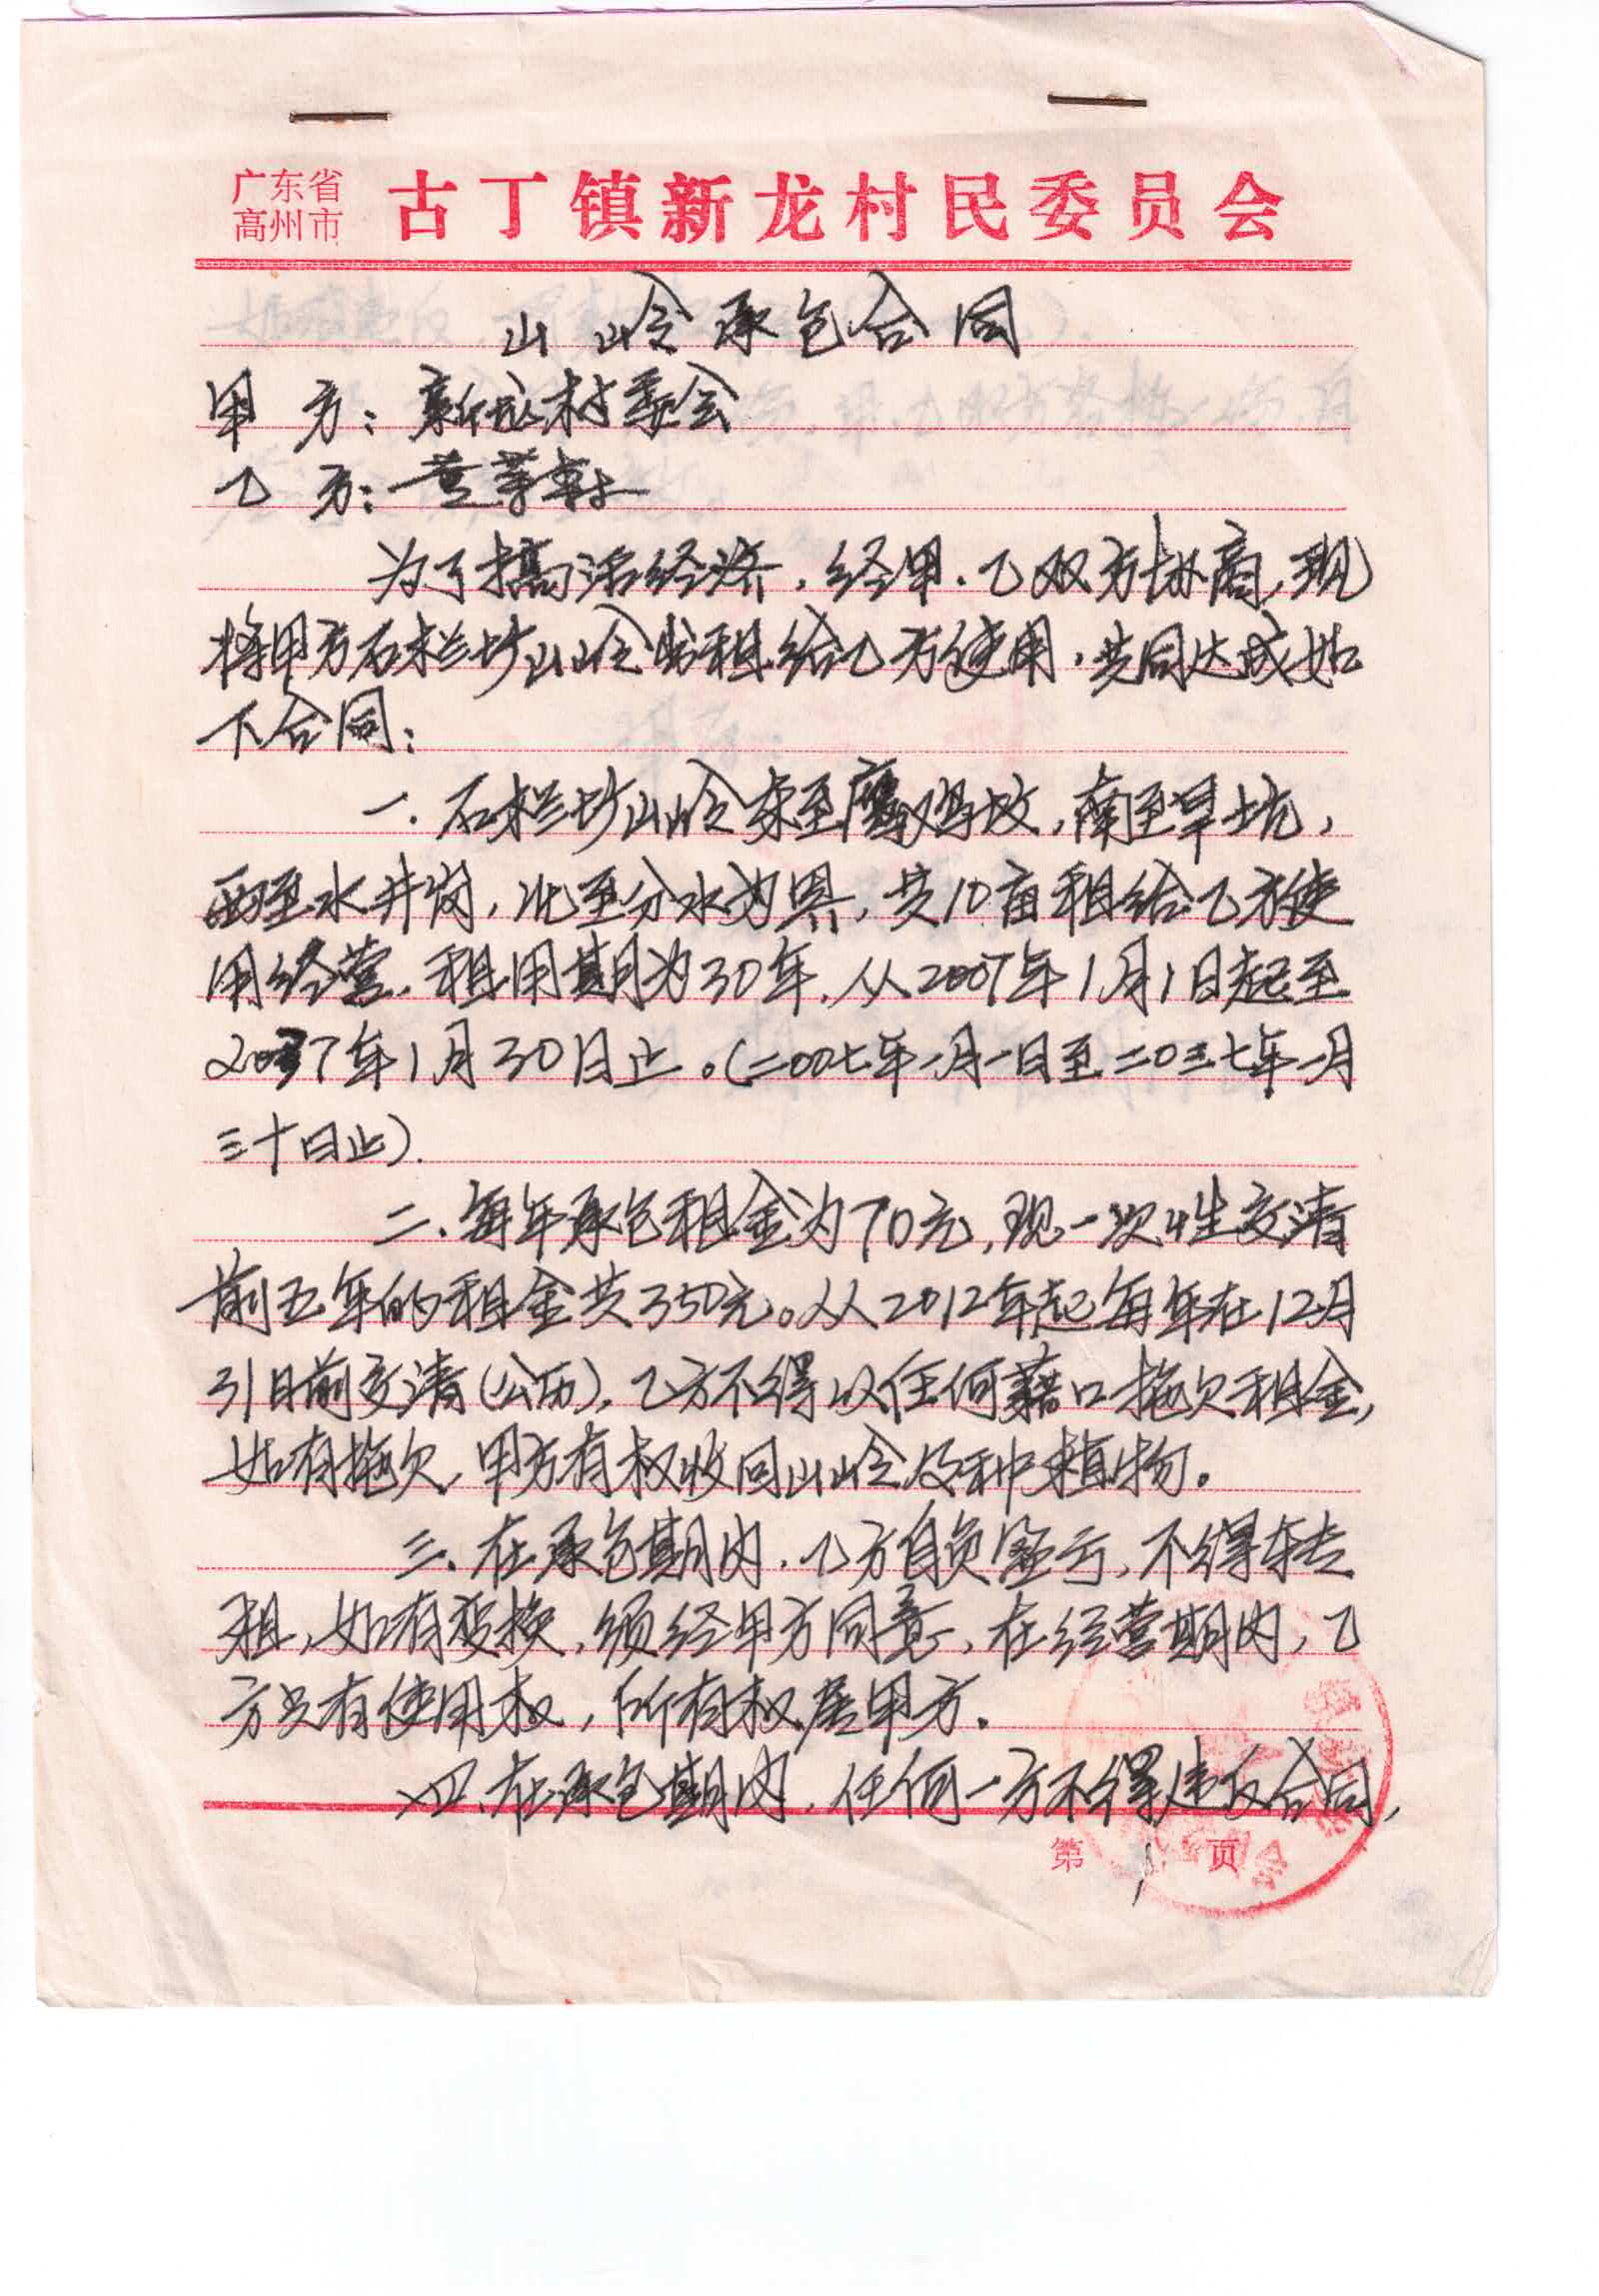 广东省
高州市
古丁镇新龙村民委员会
山岭承包合同
甲 方：新龙村委会
乙 方：黄
为了搞活经济，经甲、乙双方协商，现
将甲方石栏坳山岭出租给乙方使用，共同达成如
下合同：
一、石栏坳山岭东至鸡坟，南至旱坑，
西至水井岗，北至分水为界，共10亩租给乙方使
用经营，租用期为30年，从2007年1月1日起至
2037年1月30日止。（二00七年一月一日至二0三七年一月
三十日止）.
二、每年承包租金为70元，现一次性交清
前五年的租金共350元。从2012年起每年在12月
31日前交清（公历），乙方不得以任何藉口拖欠租金，
如有拖欠，甲方有权收回山岭及种植物。
三、在承包期内，乙方自负盈亏，不得转
租，如有变换，须经甲方同意，在经营期内，乙
方只有使用权，所有权属甲方。
四、在承包期内，任何一方不得违反合同，
第 1 页